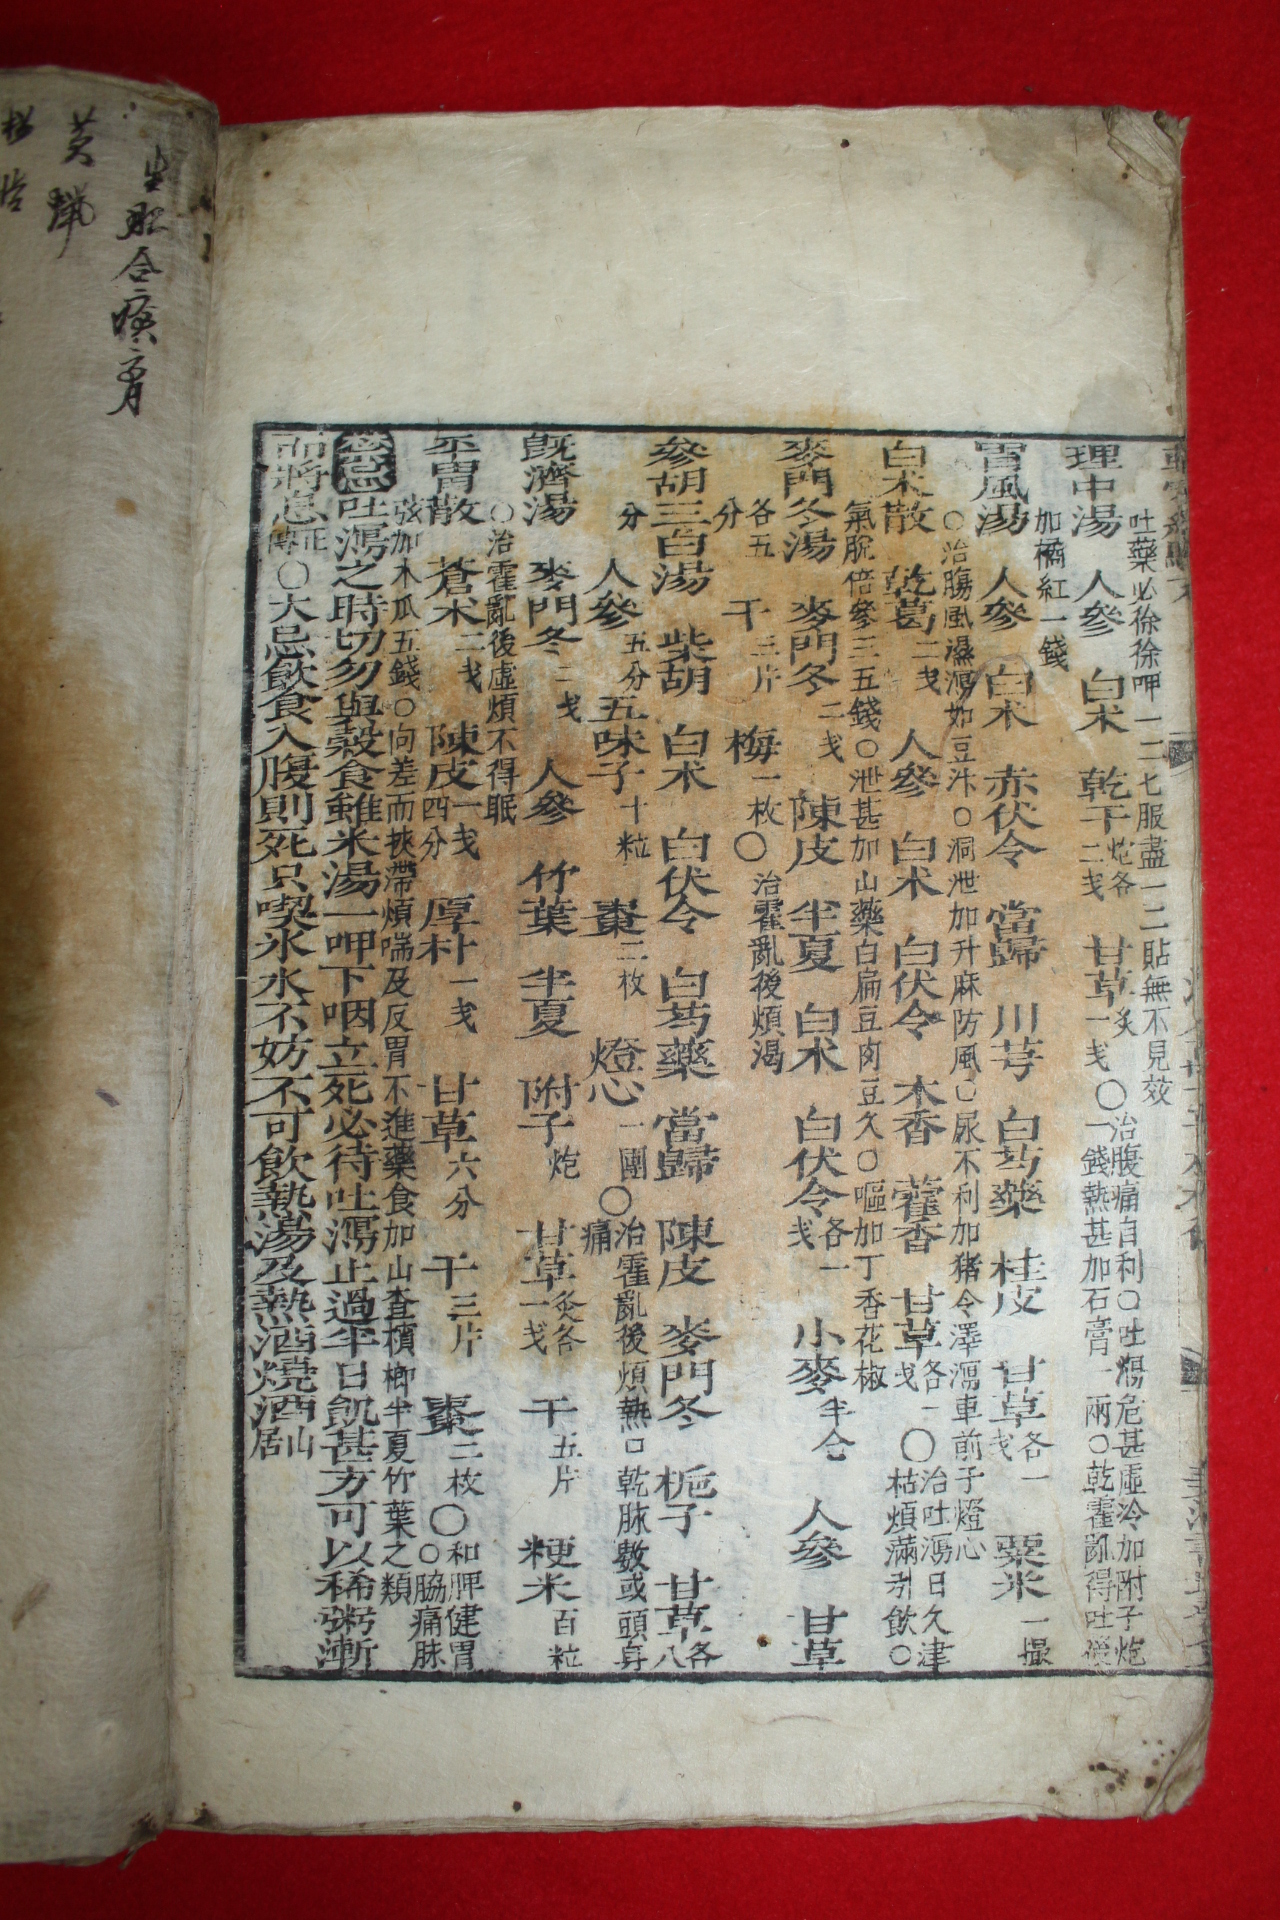 吐藥必徐徐呷一二七服盡一二貼無不見效
理中湯 人參 白朮 乾干炮各二戔 甘草炙一戔 ○治腹痛自利○吐瀉危甚虛冷加附子炮一錢熱甚加石膏一兩○乾霍亂得吐後
加橘紅一錢
胃風湯 人參 白朮 赤伏令 當歸 川芎 白芍藥 桂皮 甘草各一戔 粟米一撮
○治膓風濕瀉如豆汁○洞泄加升麻防風○尿不利加猪令澤瀉車前子燈心
白朮散 乾葛二戔 人參 白朮 白伏令 木香 藿香 甘草各一戔 ○治吐瀉日久津枯煩滿引飮○
氣脫倍參三五錢○泄甚加山藥白扁豆肉豆久○嘔加丁香花椒
麥門冬湯 麥門冬二戔 陳皮 半夏 白朮 白伏令各一戔 小麥半合 人參 甘草
各五分 干三片 梅一枚 ○治霍亂後煩渴
參胡三白湯 柴胡 白朮 白伏令 白芍藥 當歸 陳皮 麥門冬 梔子 甘草各八
分 人參五分 五味子十粒 棗二枚 燈心一團 ○治霍亂後煩熱口乾脉數或頭身痛
旣濟湯 麥門冬二戔 人參 竹葉 半夏 附子炮 甘草灸各一戔 干五片 粳米百粒
○治霍亂後虛煩不得眠
平胃散 蒼朮二戔 陳皮一戔四分 厚朴一戔 甘草六分 干三片 棗二枚 ○和脾健胃○脇痛脉
弦加木瓜五錢○向差而挾滯煩喘及反胃不進藥食加山査檳榔半夏竹葉之類
禁忌 吐瀉之時切勿與穀食雖米湯一呷下咽立死必待吐瀉止過半日飢甚方可以稀粥漸
而將息正傳○大忌飮食入腹則死只喫氷水不妨不可飮熱湯及熱酒燒酒山居